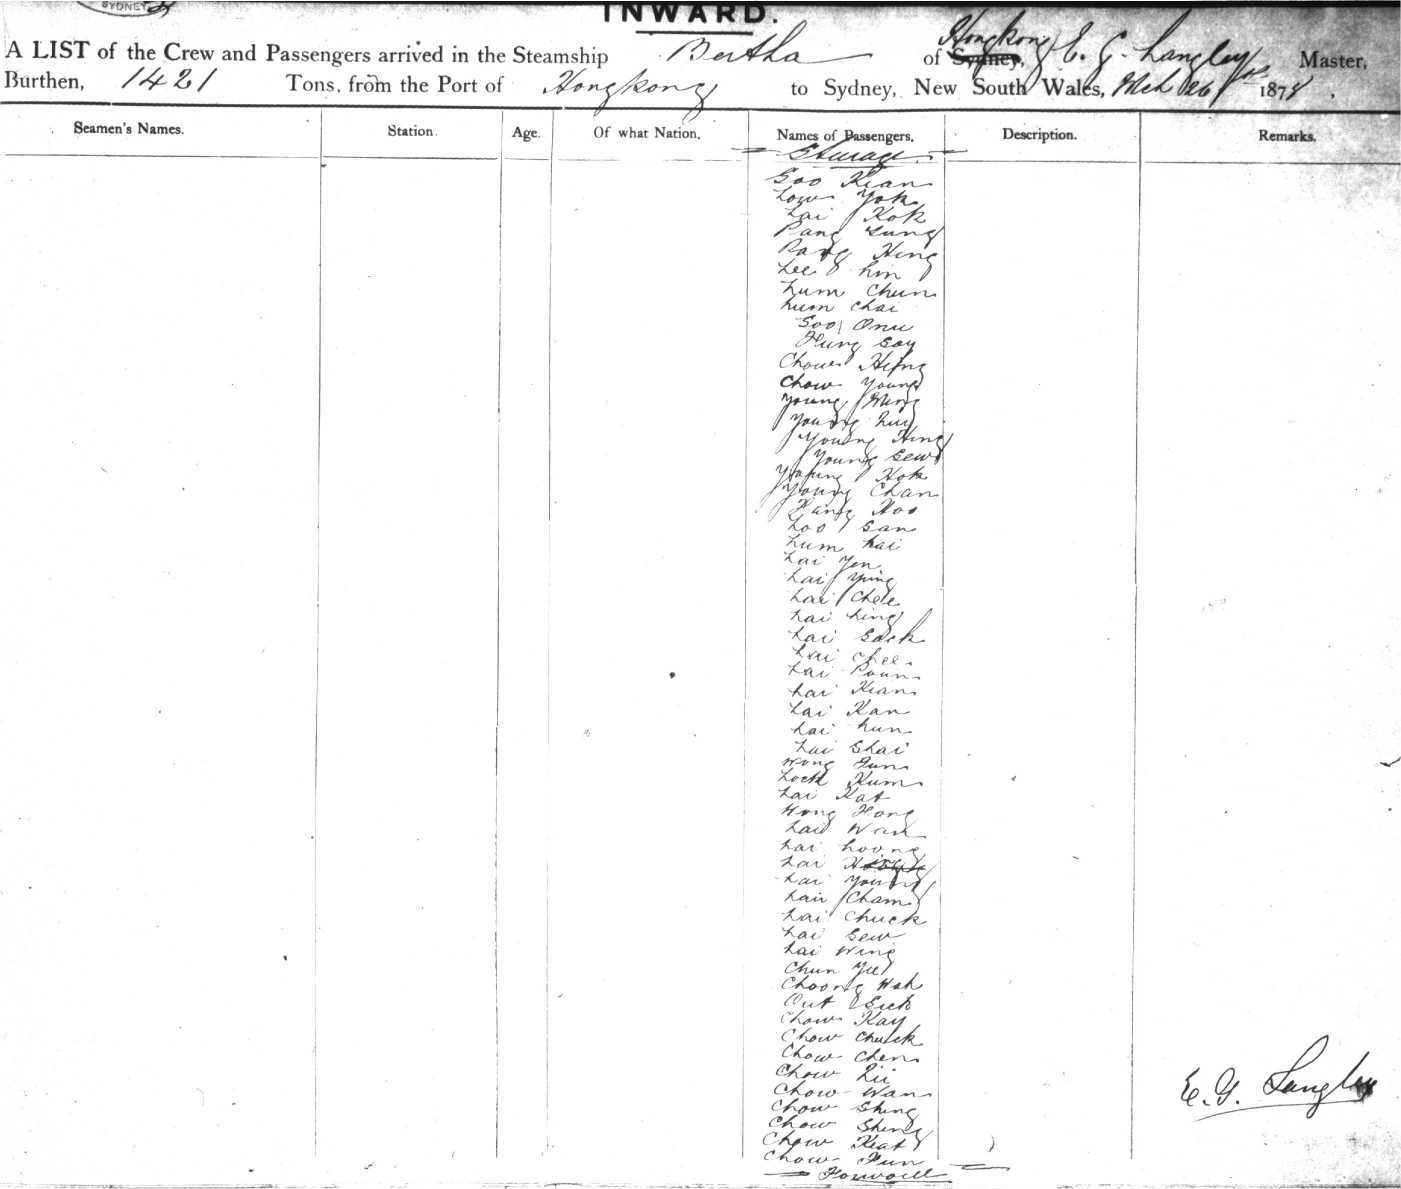 SYDNEY
INWARD.
A LIST of the Crew and Passengers arrived in the Steamship Bertha of Sydney, Hongkong E. G. Langley Master,
Burthen, 1421 Tons, from the Port of Hongkong to Sydney, New South Wales, Mch 26 1878,
Seamen's Names. Station. Age. Of what Nation. Names of Passengers. Description. Remarks.
Goo Kian
Low Yok
Lai Kok
Pang Sung
Pang Hing
Lee Lim
Lum Chun
Lum Chai
Goo
Hung Goy
Chow Hing
Chow Young
Young Ming
Young Luy
Young Hing
Young Sew
Young Hok
Young Chan
Hang Hoo
Loo San
Lum Lai
Lai Yen
Lai Ying
Lai Chee
Lai Ling
Lai Sack
Lai Chee
Lai Poun
Lai Kian
Lai Kan
Lai Lun
Lai Shai
Wong Sun
Lock Kum
Lai Kat
Wong Hong
Lai Wan
Lai Loong
Lai
Lai Young
Lai Cham
Lai Chuck
Lai Sew
Lai Wing
Chun Yee
Choong Wah
Out Sick
Chow Kay
Chow Chuck
Chow Chen
Chow Lii
Chow Wan
Chow Shing
Chow Shing
Chow Keat
Chow Fun
E. G. Langley